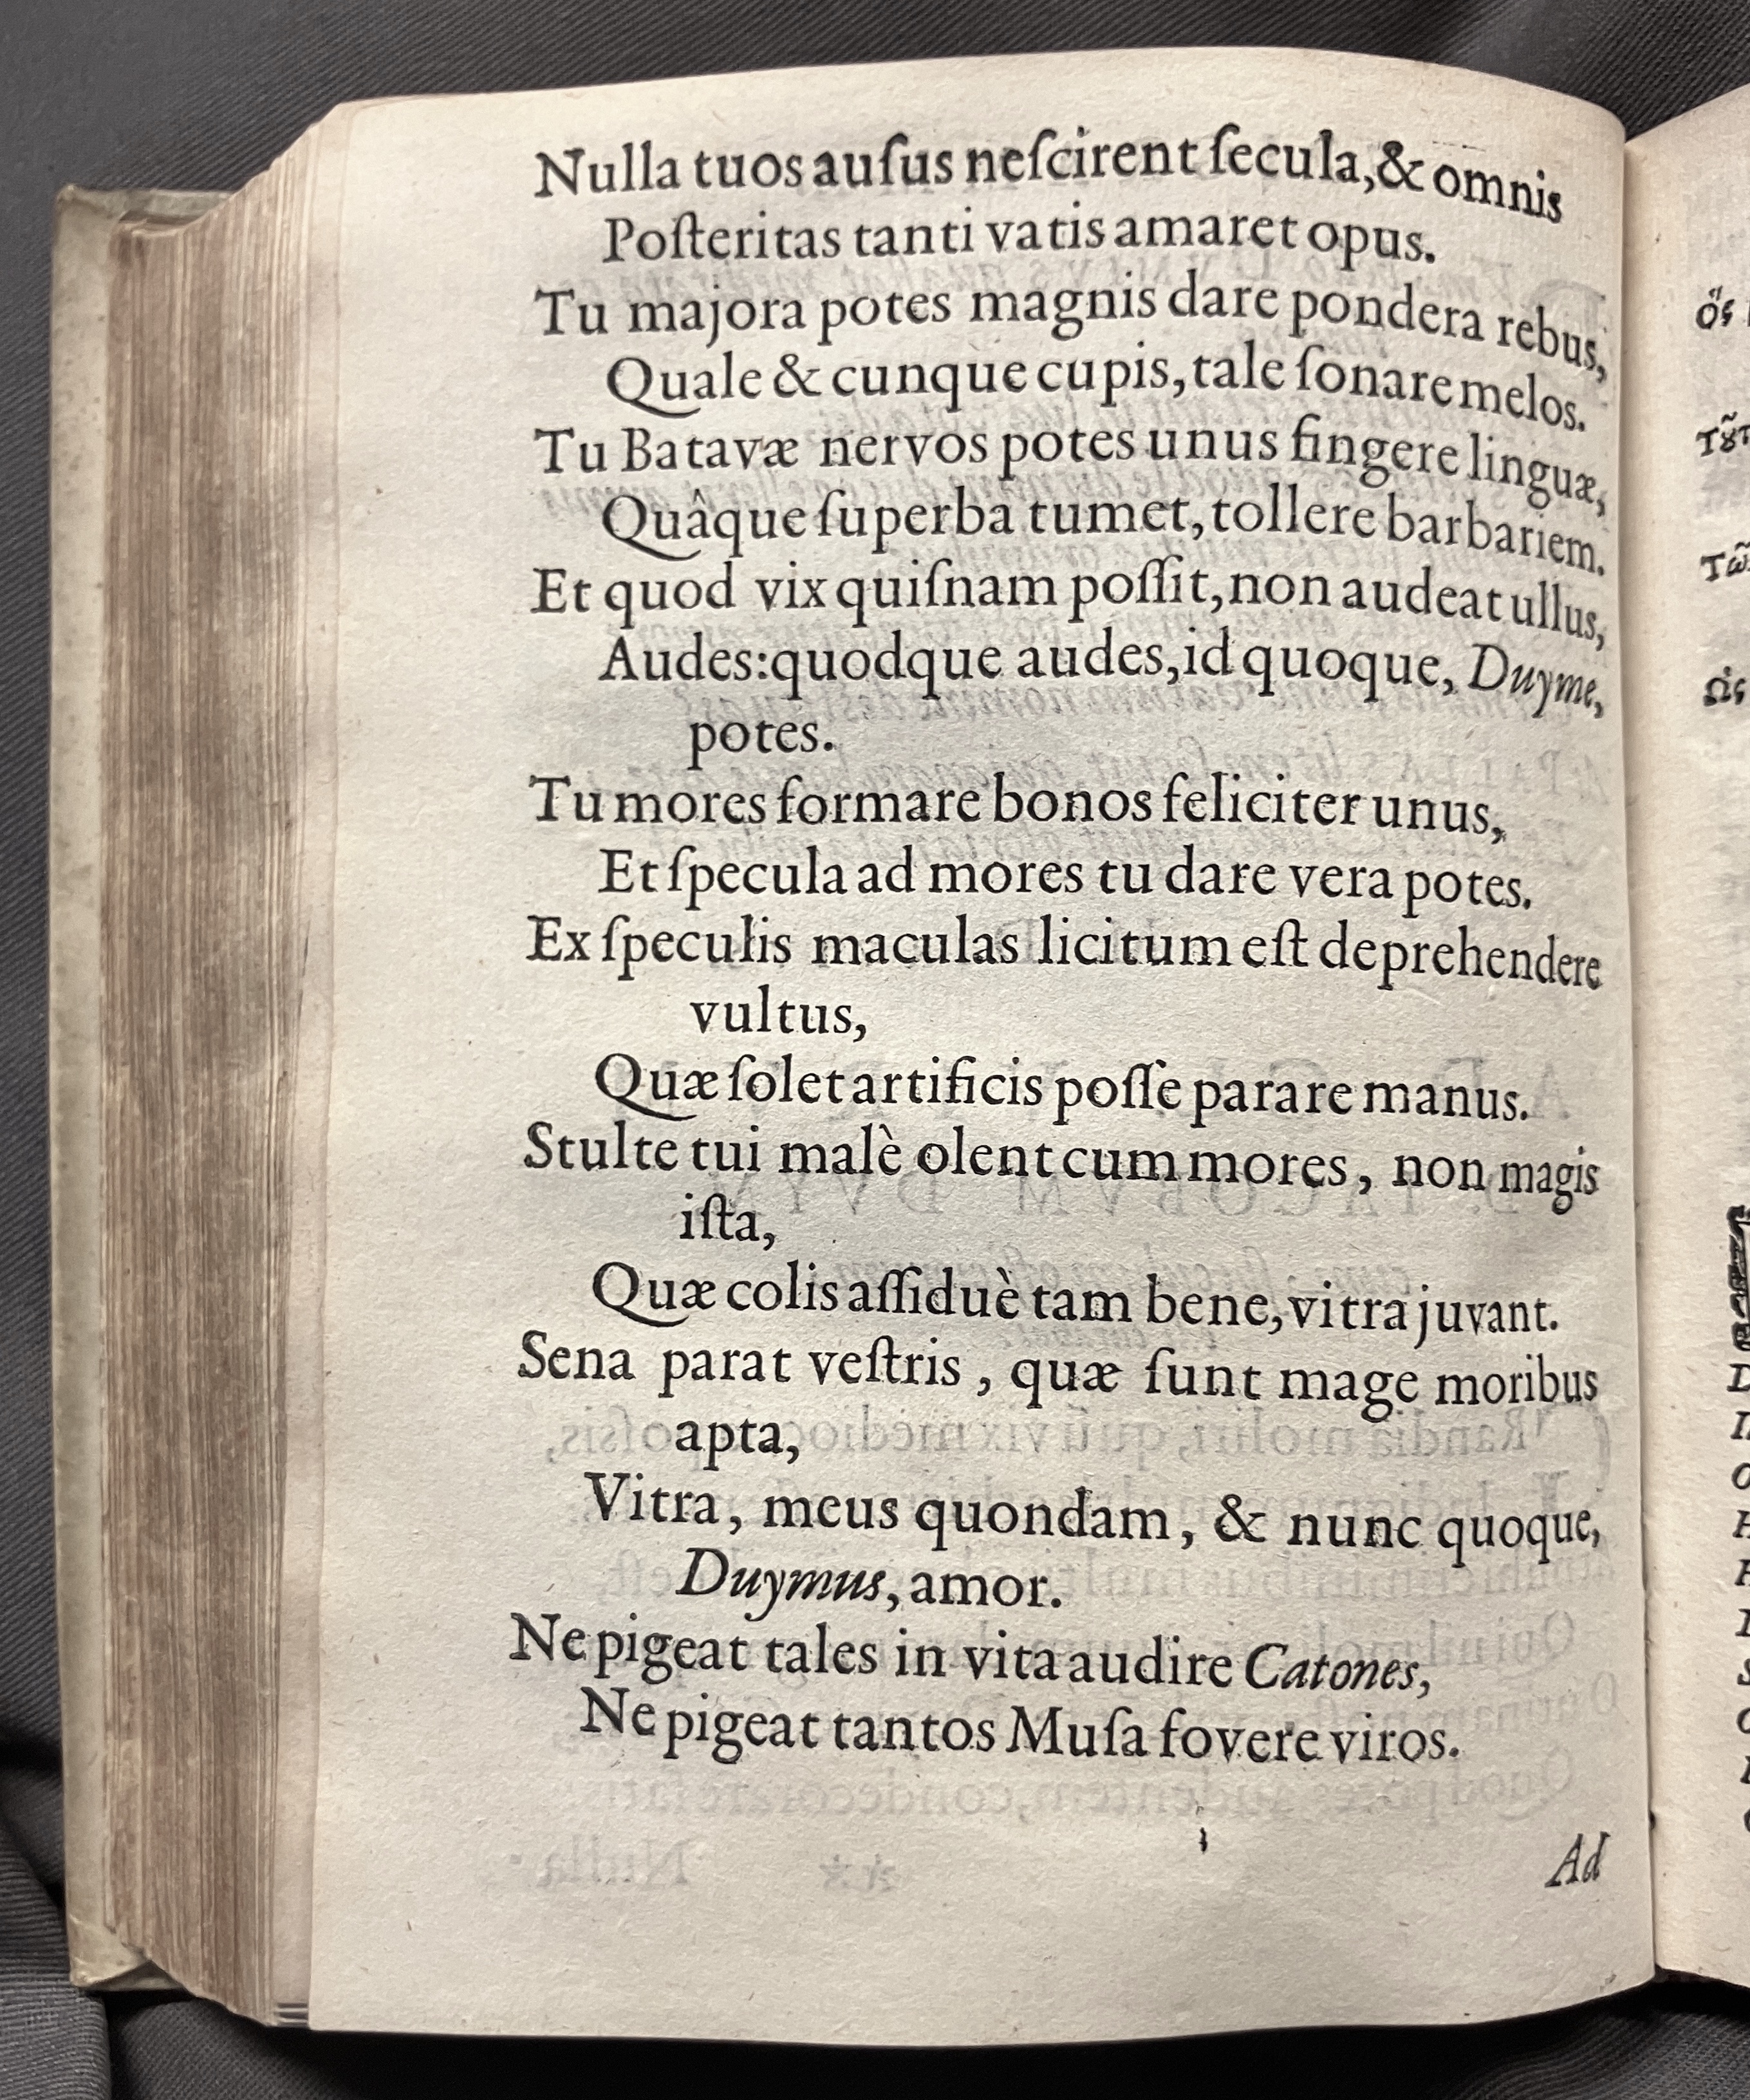 Nulla tuos auſus neſcirent ſecula, & omnis
Poſteritas tanti vatis amaret opus.
Tu majora potes magnis dare pondera rebus,
Quale & cunque cupis, tale ſonare melos.
Tu Batavæ nervos potes unus fingere linguæ,
Quâque ſuperba tumet, tollere barbariem.
Et quod vix quiſnam poſſit, non audeat ullus,
Audes: quodque audes, id quoque, Duyme,
potes.
Tu mores formare bonos feliciter unus,
Et ſpecula ad mores tu dare vera potes.
Ex ſpeculis maculas licitum eſt deprehendere
vultus,
Quæ ſolet artificis poſſe parare manus.
Stulte tui malè olent cum mores, non magis
iſta,
Quæ colis aſſiduè tam bene, vitra juvant.
Sena parat veſtris, quæ ſunt mage moribus
apta,
Vitra, meus quondam, & nunc quoque,
Duymus, amor.
Ne pigeat tales in vita audire Catones,
Ne pigeat tantos Muſa fovere viros.
Ad